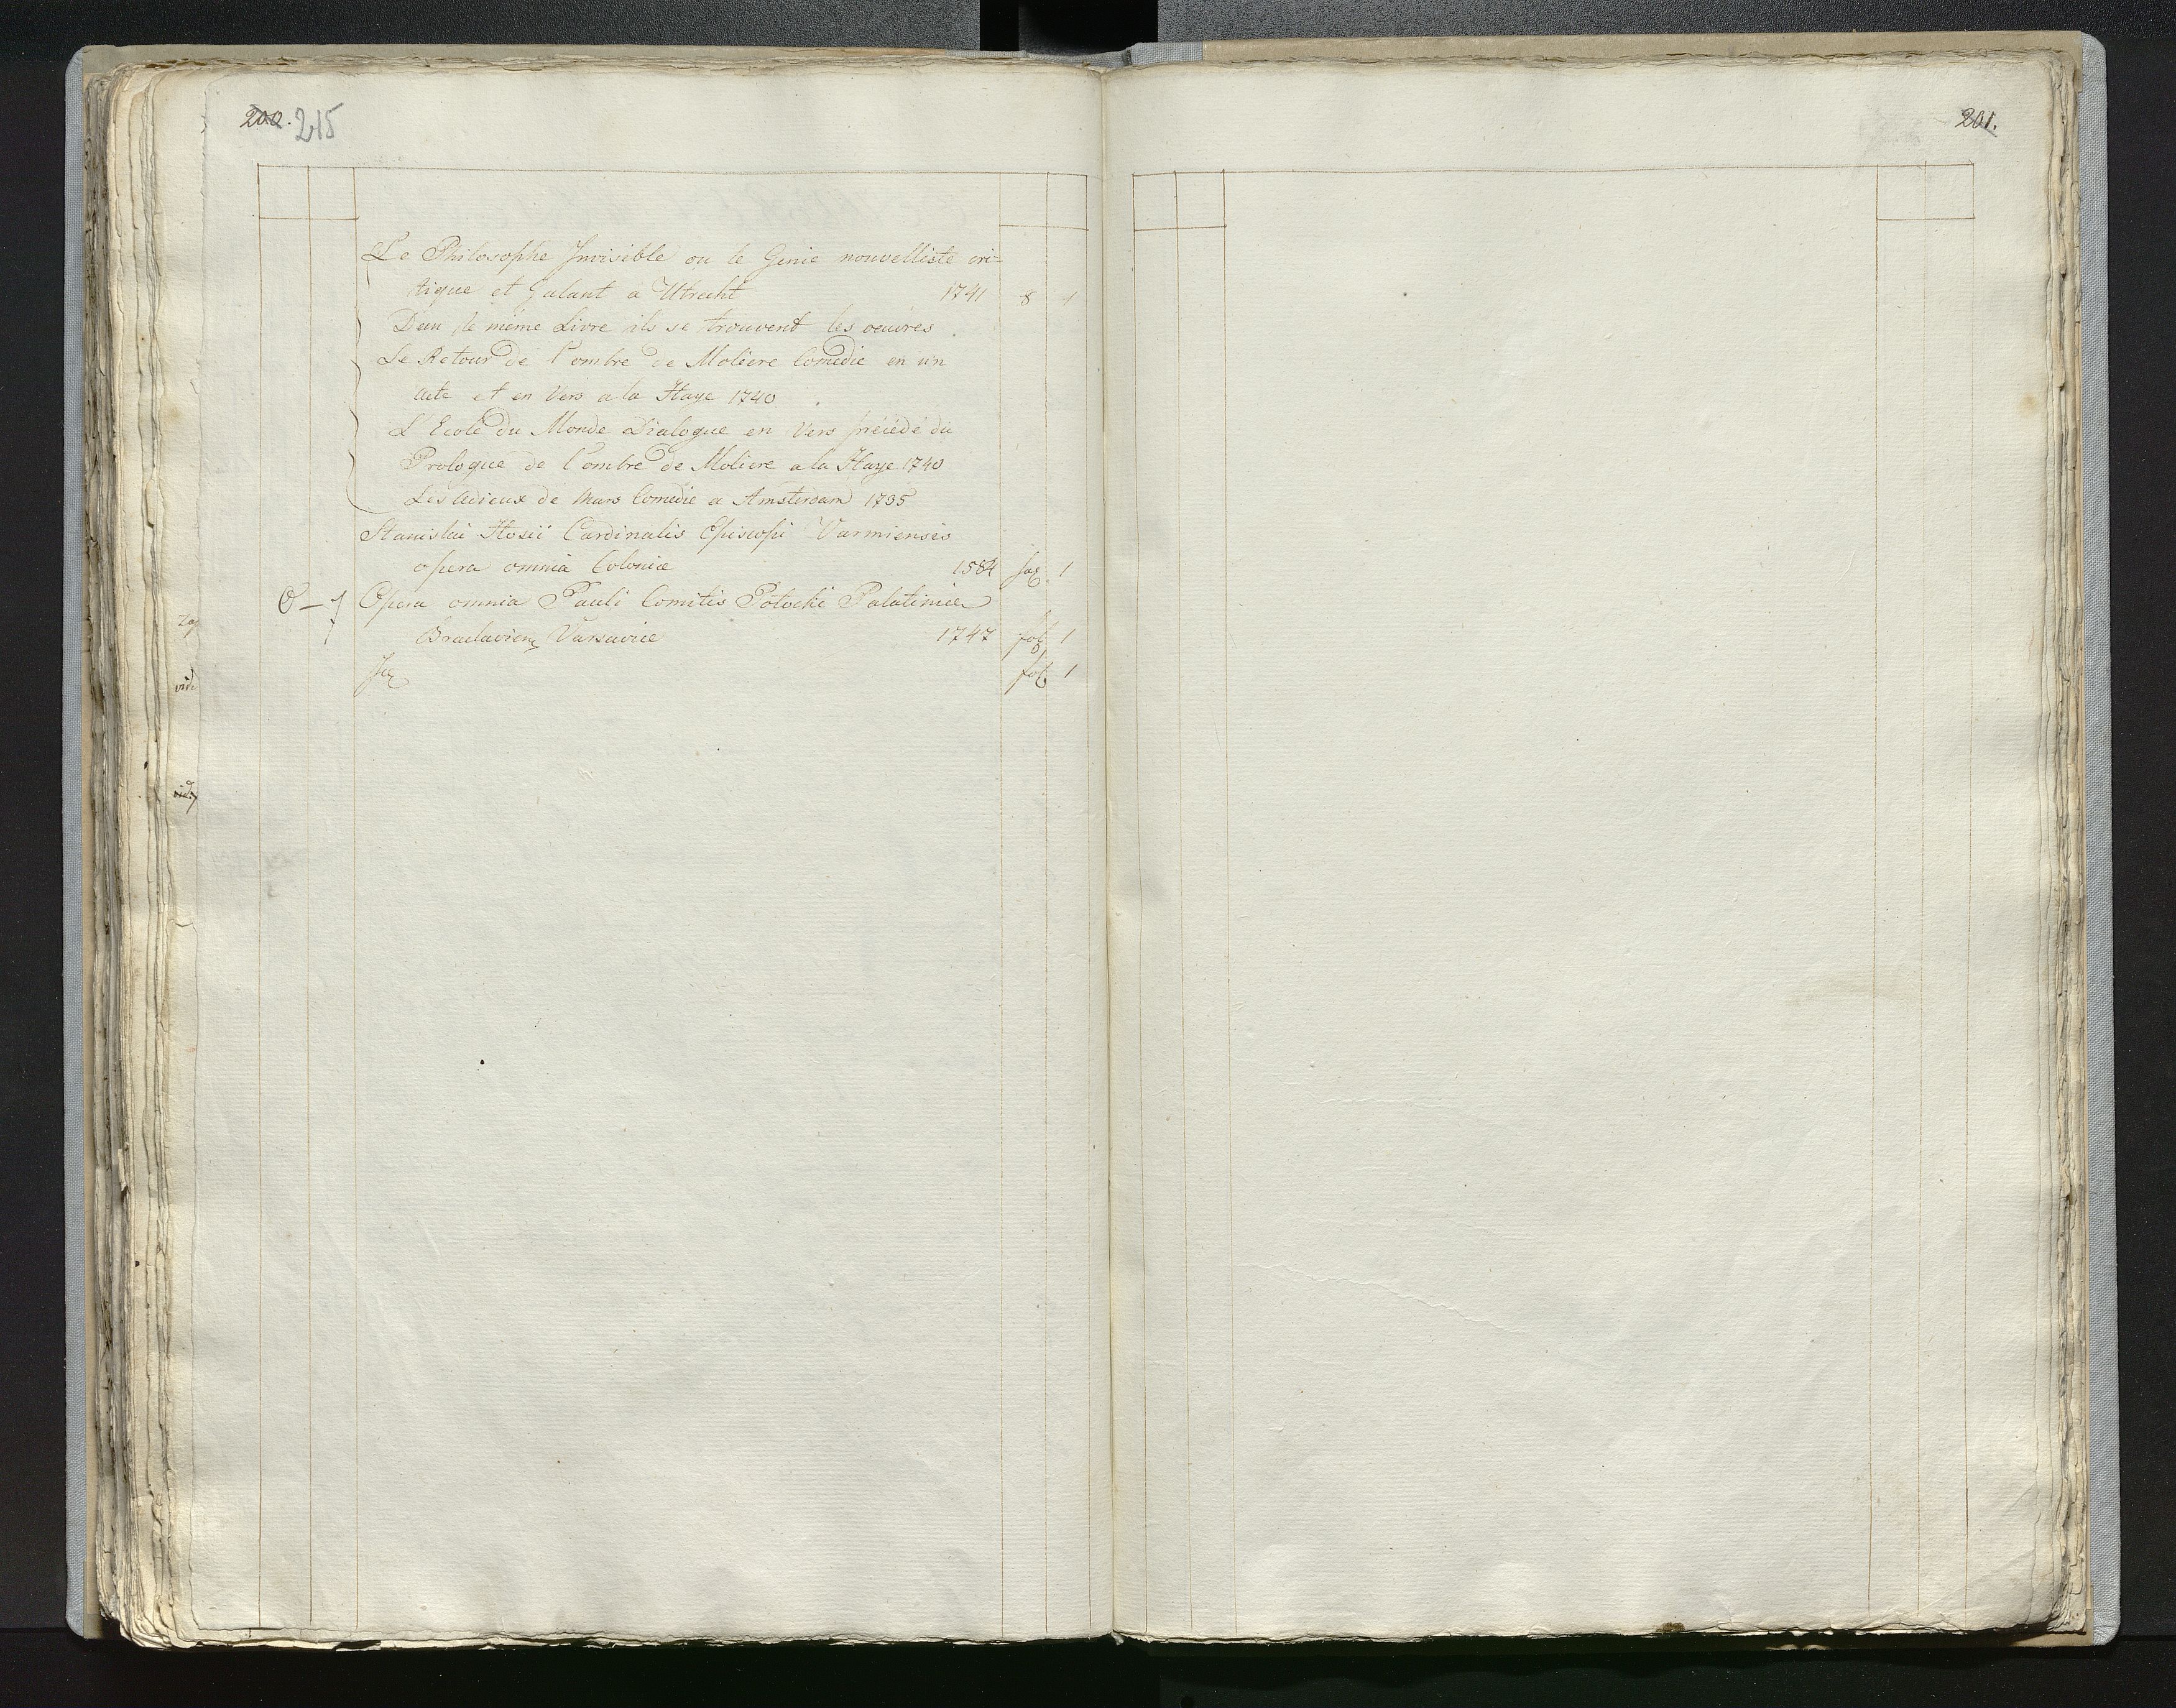 200. 215
Le Philosophe Invisible ou le Genie nouvelliste cri=
tique et galant a Utrecht 1741 8 1
Dan le même Livre ils se trouvent les oeuvres
Le Retour de l'ombre de Moliere Comedie en un
acte et en Vers a la Haye 1740
L'Ecole du Monde Dialogue en Vers précédé du
Prologue de l'ombre de Moliere a la Haye 1740
Les Adieux de Mars Comedie a Amsterdam 1735
Stanislai Hosii Cardinalis Episcopi Varmiensis
opera omnia Coloniæ 1584 1
Opera omnia Pauli Comitis Potocki Palatini
Braclavien Varsaviæ 1747 fol 1
fol 1
vide
201.